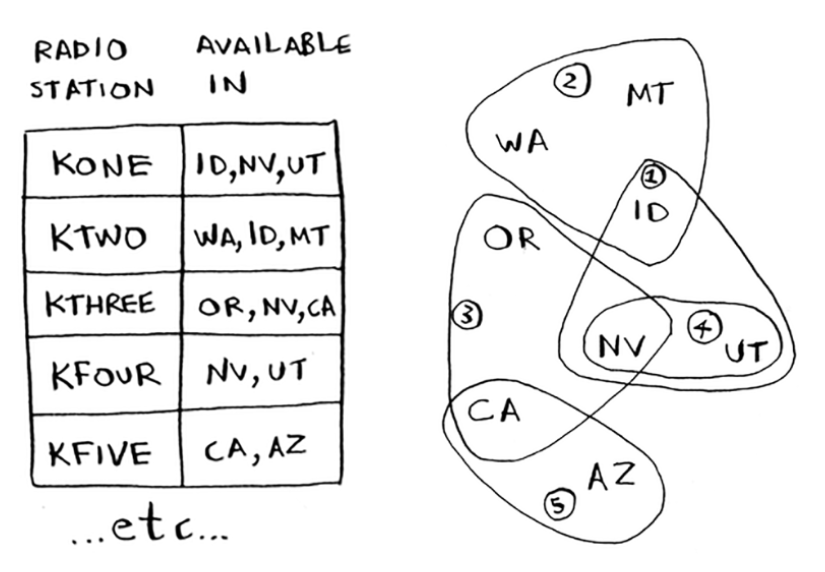 RADIO STATION
AVAILABLE IN
KONE ID,NV,UT
KTWO WA,ID,MT
KTHREE OR,NV,CA
KFOUR NV,UT
KFIVE CA,AZ
...etc...
2
MT
WA
1
ID
OR
3
4
NV
UT
CA
AZ
5